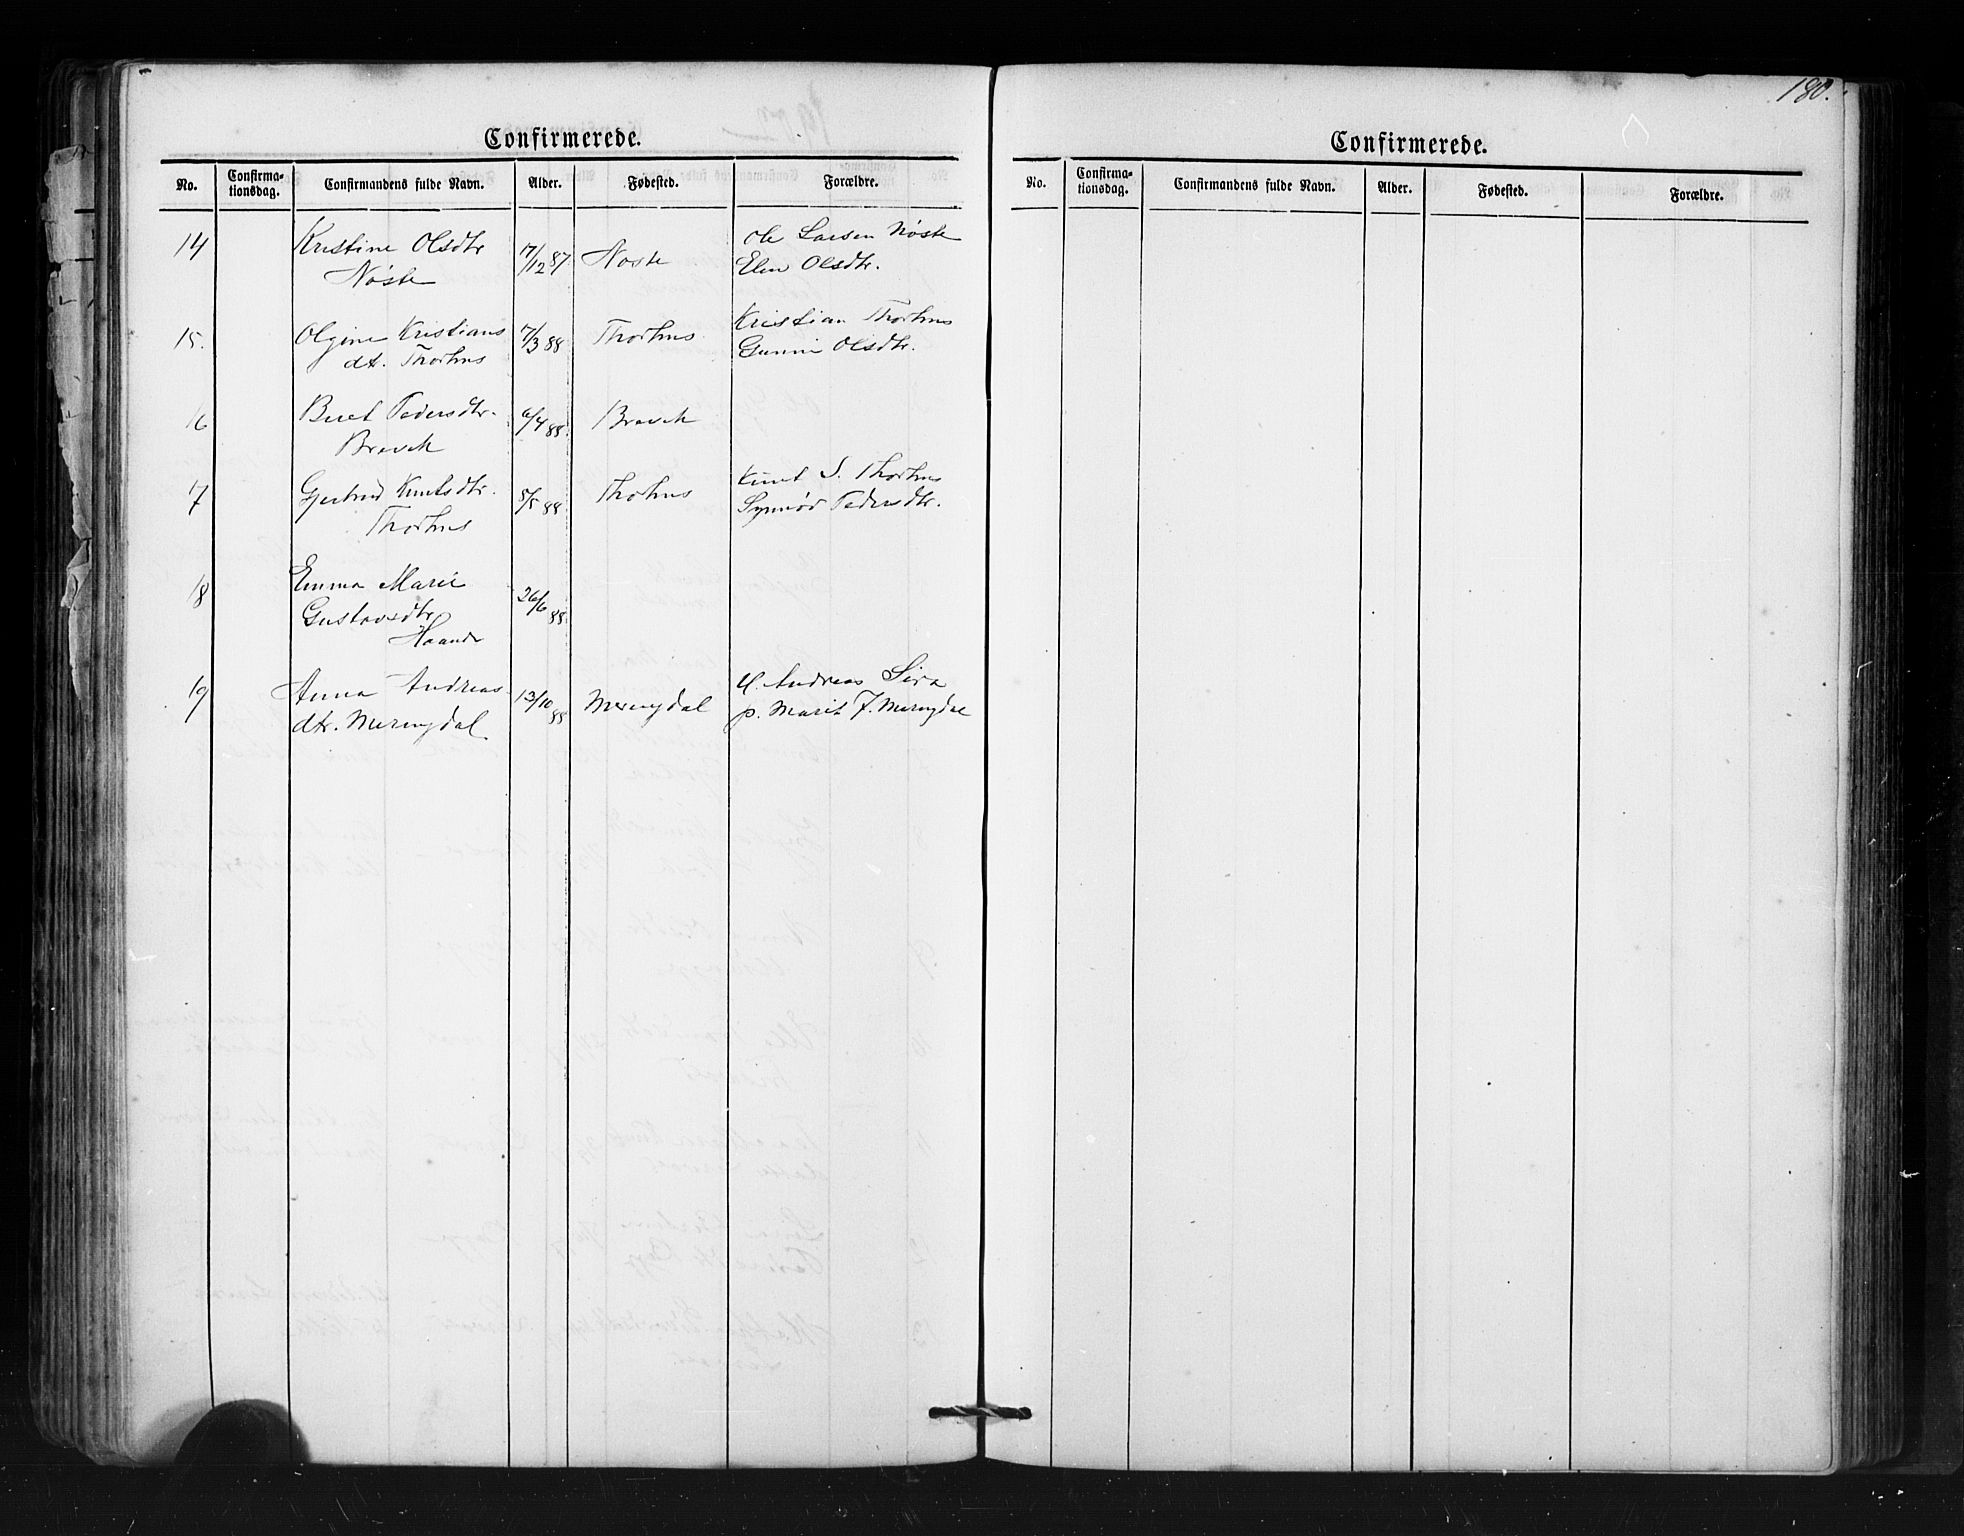 180.
Confirmerede.
No. Confirma-tionsdag. Confirmandens fulde Navn. Alder. Fødested. Forældre.
14 Kristine Olsdtr 17/12 87 Nøste Ole Larsen Nøste
Nøste Elen Olsdtr.
15. Olgine Kristians 7/3 88 Thorhus Kristian Thorhus
dt. Thorhus Gunni Olsdtr.
16 Beret Pedersdtr. 6/4 88. Bravik
Bravik
17 Gjertrud Knutsdtr. 5/5 88 Thorhus Knut S. Thorhus
Thorhus Synnøv Pedersdtr.
18 Emma Marie 26/6 88
Gustavsdtr
19 Anna Andreas- 13/10 88 Meringdal U. Andreas Sira
dtr. Meringdal p. Marit J. Meringdal
Confirmerede.
No. Confirma-tionsdag. Confirmandens fulde Navn. Alder. Fødested. Forældre.